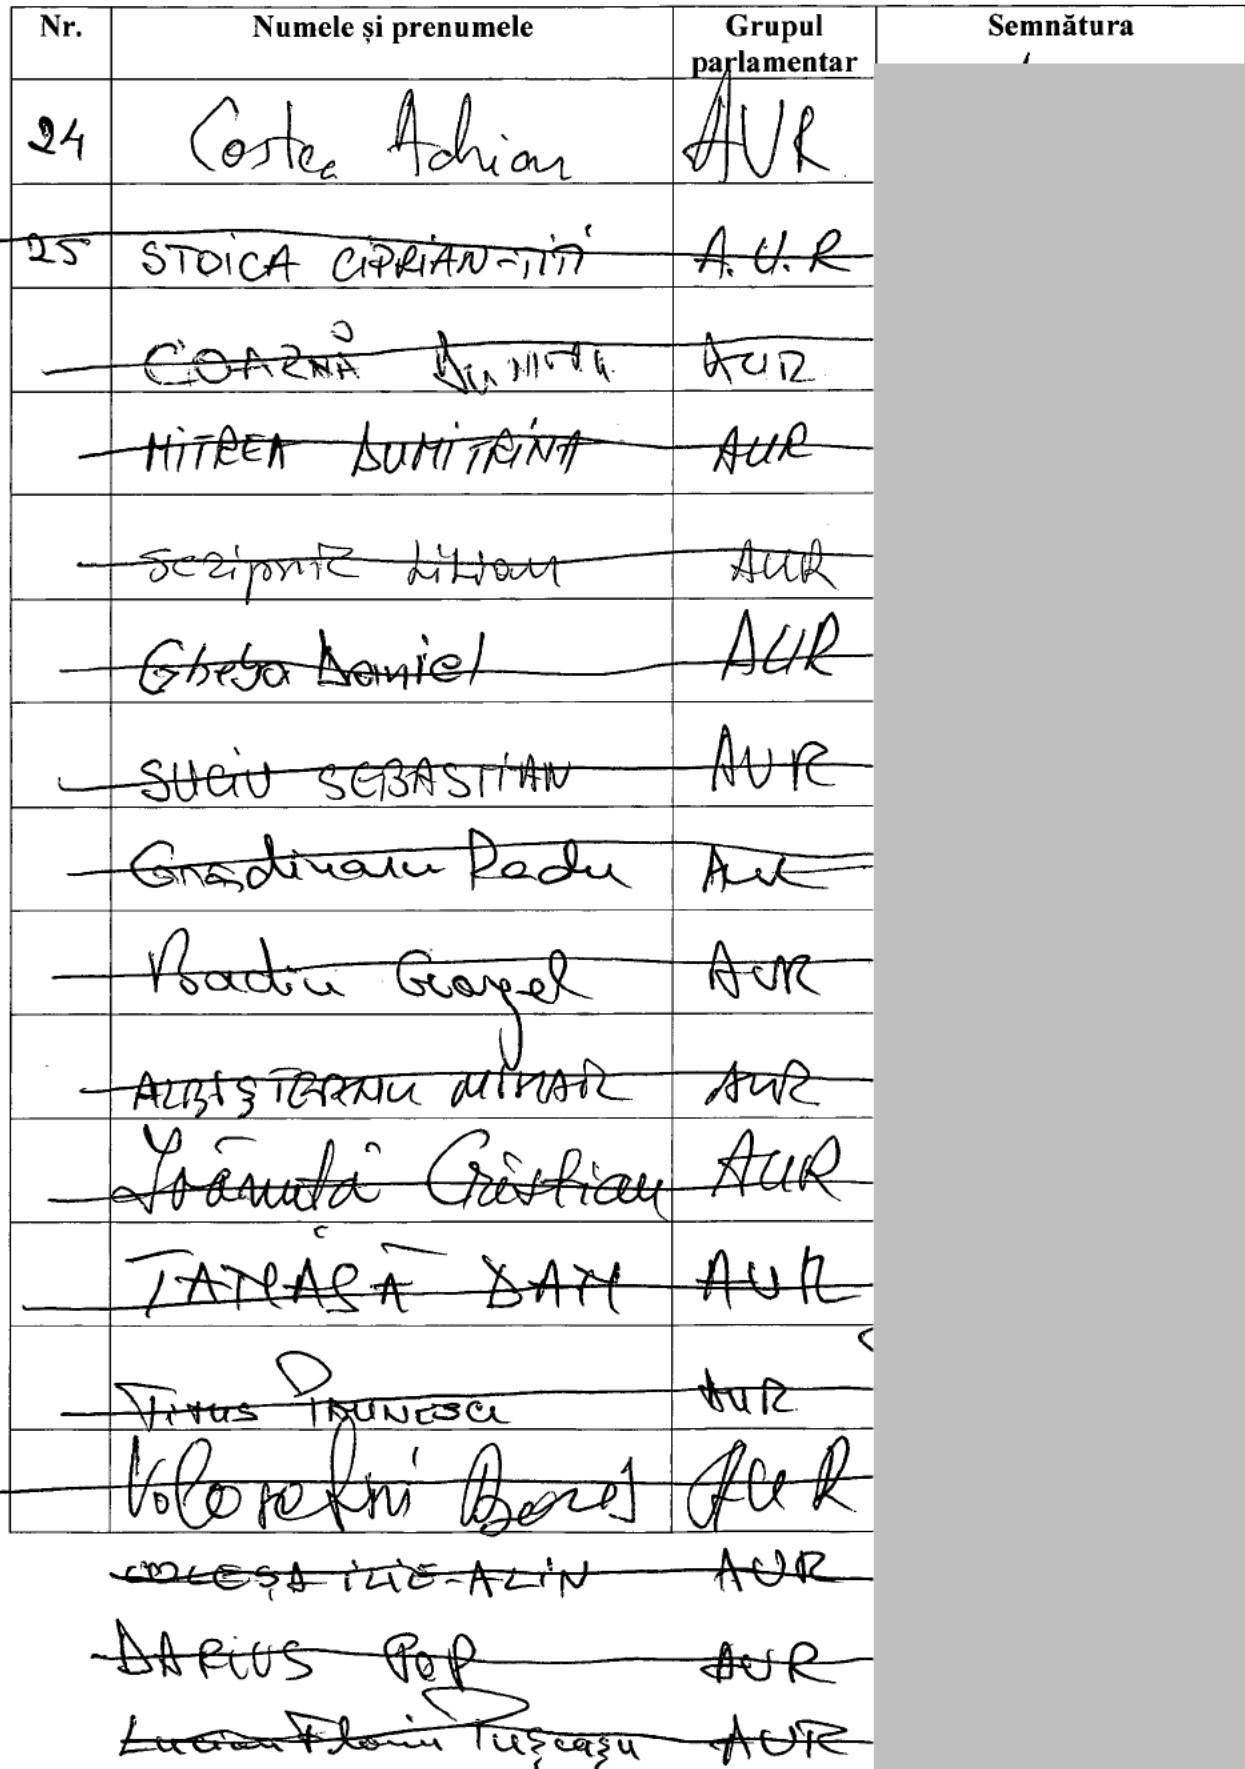 Nr. Numele și prenumele Grupul parlamentar Semnătura
24 Costea Adrian AUR
25 STOICA CIPRIAN-TITI A.U.R
COARNĂ Dumitru AUR
MITREA DUMITRINA AUR
Scripnic Lilian AUR
Gheba Daniel AUR
SUCIU SEBASTIAN AUR
Grădinaru Radu AUR
Badiu Georgel AUR
ALBIȘTEANU MIHAIL AUR
Ivănuță Cristian AUR
TANASĂ DAN AUR
Titus PĂUNESCU AUR
AUR
COLEȘA ILIE-ALIN AUR
DARIUS POP AUR
Lucian Florin Pușcașu AUR